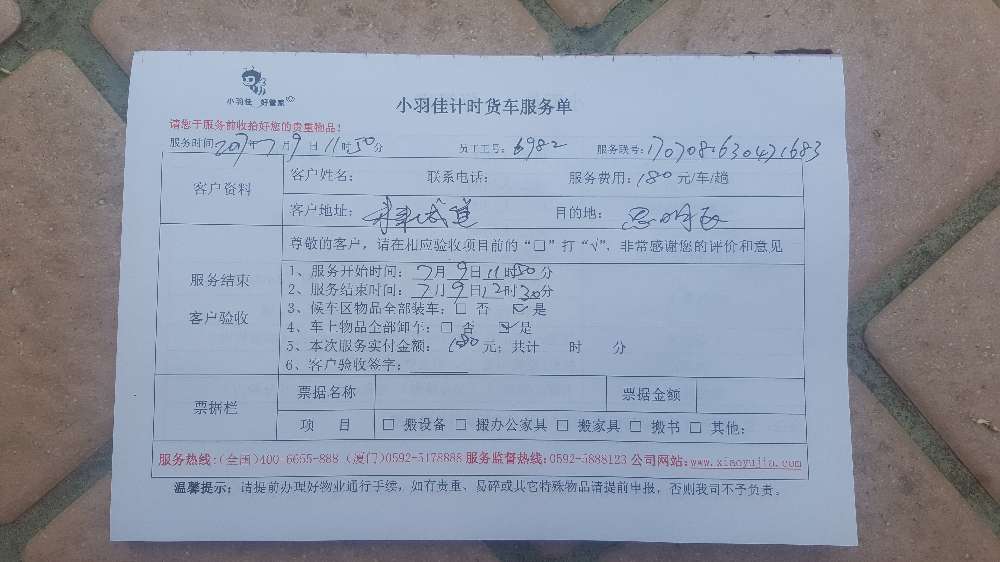 小羽佳 好管家
小羽佳计时货车服务单
请您于服务前收拾好您的贵重物品!
服务时间:2017年7月9日11时50分 员工工号:6982 服务联号:1707081630471683
客户资料
客户姓名: 联系电话: 服务费用:180元/车/趟
客户地址: 目的地:思明区
服务结束
客户验收
尊敬的客户，请在相应验收项目前的“□”打“√”，非常感谢您的评价和意见
1、服务开始时间:7月9日11时50分
2、服务结束时间:7月9日12时30分
3、候车区物品全部装车:□ 否 ☑是
4、车上物品全部卸车:□ 否 ☑是
5、本次服务实付金额: 180元；共计 时 分
6、客户验收签字:
票据栏
票据名称 票据金额
项 目 □ 搬设备 □ 搬办公家具 □ 搬家具 □ 搬书 □ 其他:
服务热线:(全国)400-6655-888 (厦门)0592-5178888 服务监督热线:0592-5888123 公司网站:www.xiaoyujia.com
温馨提示:请提前办理好物业通行手续，如有贵重、易碎或其它特殊物品请提前申报，否则我司不予负责。